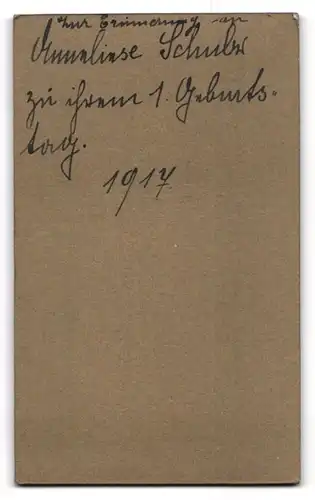 Zur Erinnerung an
Anneliese Schulz
zu ihrem 1. Geburts-
tag.
1917